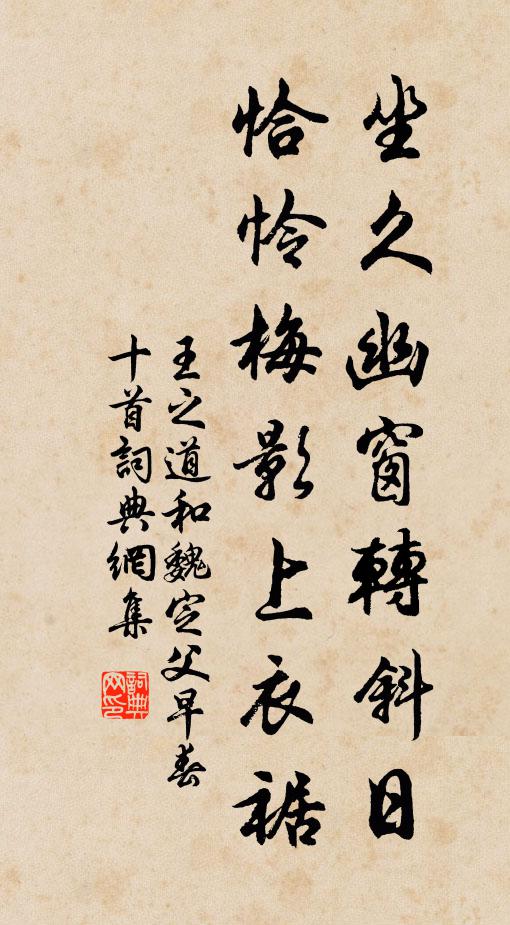 坐久幽窗轉斜日
恰怜梅影上衣裾
王之道和魏定父早春
十首詞典網集
詞典
网印